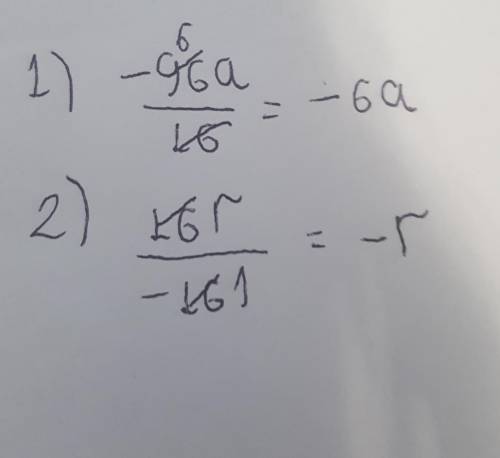 1) -96a 6 / 16 = -6a
2) 16r / -16 1 = -r